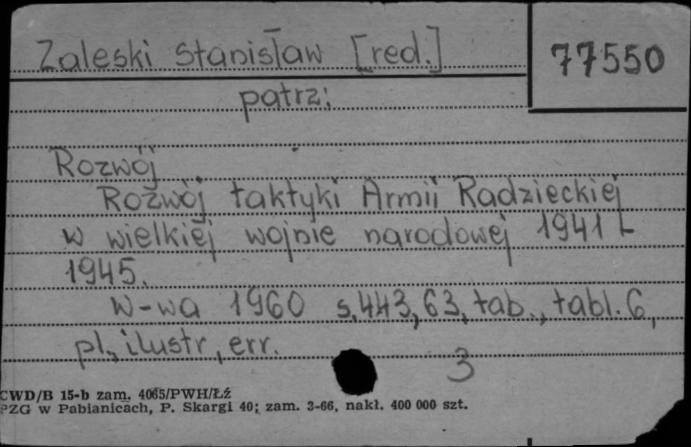 Zaleski Stanisław [red.]
77550
patrz:
Rozwój
Rozwój taktyki Armii Radzieckiej
w wielkiej wojnie narodowej 1941-
1945.
W-wa 1960 s. 443, 63, tab., tabl. 6,
pl., ilustr, err.
3
CWD/B 15-b zam. 4065/PWH/Łź
PZG w Pabianicach, P. Skargi 40; zam. 3-66, nakł. 400 000 szt.